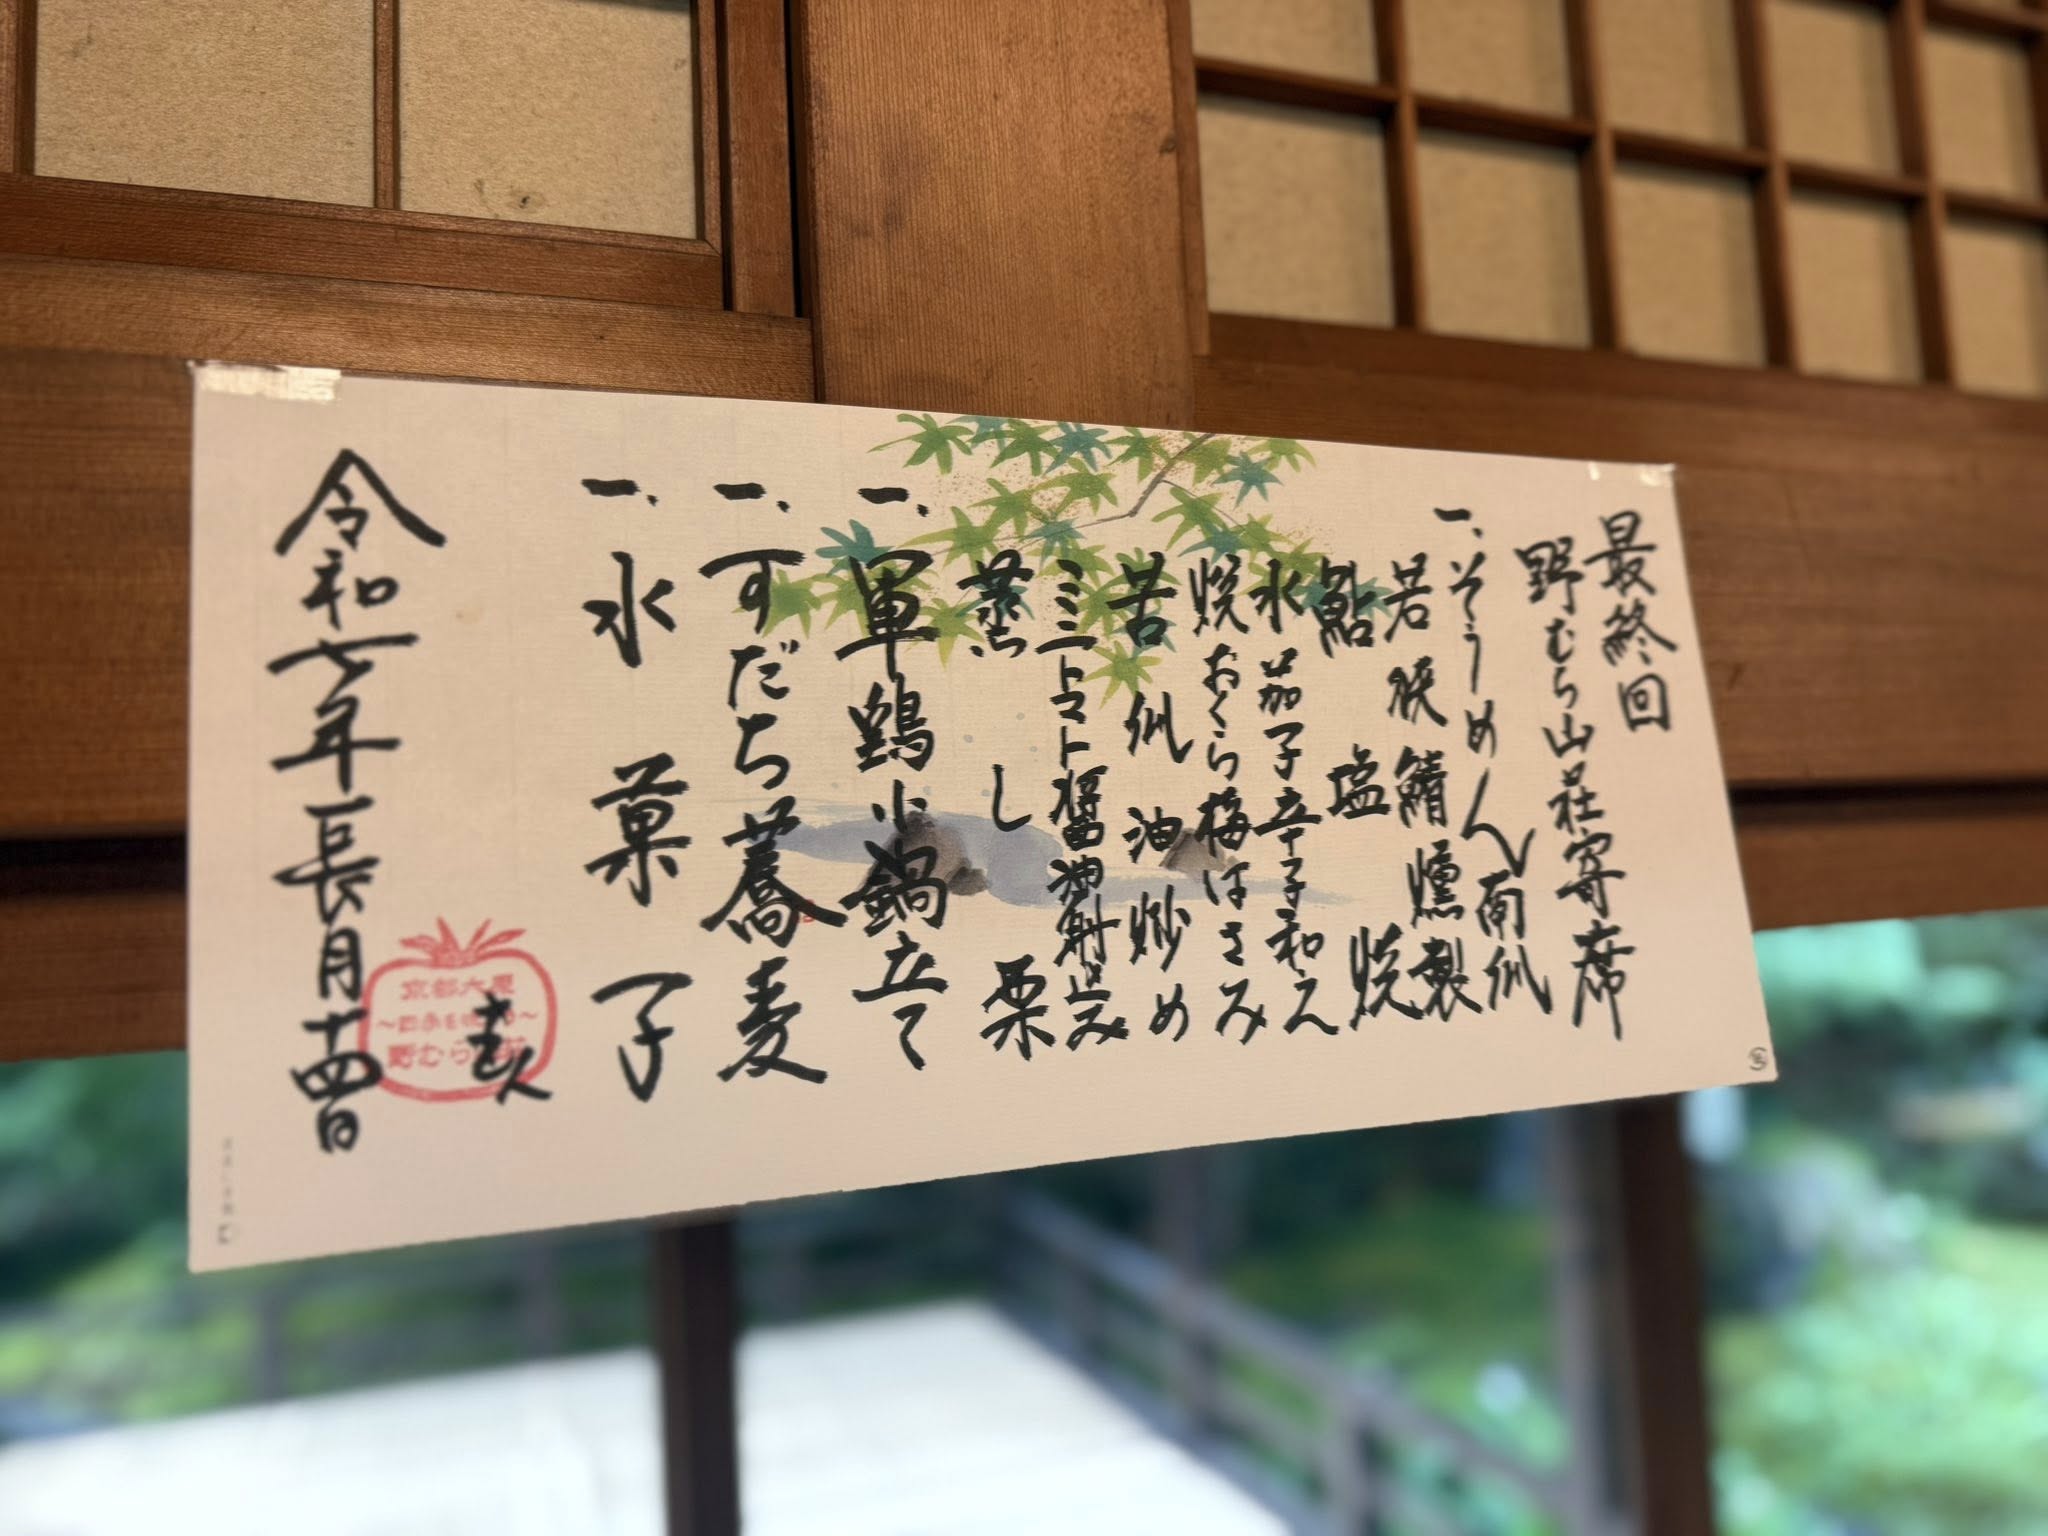 最終回
野むら山荘寄席
一、そうめん南瓜
若狭鯖燻製
鮎塩焼
水茄子辛子和え
焼おくら梅はさみ
苦瓜油炒め
ミニトマト醤油射込み
蒸し栗
一、軍鶏小鍋立て
一、すだち蕎麦
一、水菓子
令和七年長月十四日
京都大原
野むら山荘